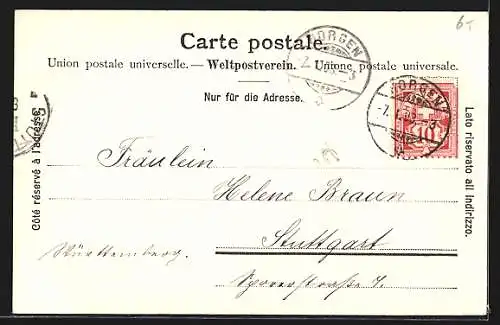 6-
Carte postale.
HORGEN
Union postale universelle. — Weltpostverein. — Unione postale universale.
Nur für die Adresse.
HORGEN
10
Côté réservé à l'adresse.
Lato riservato all indirizzo.
Fräulein
Helene Braun
Stuttgart
Württemberg.